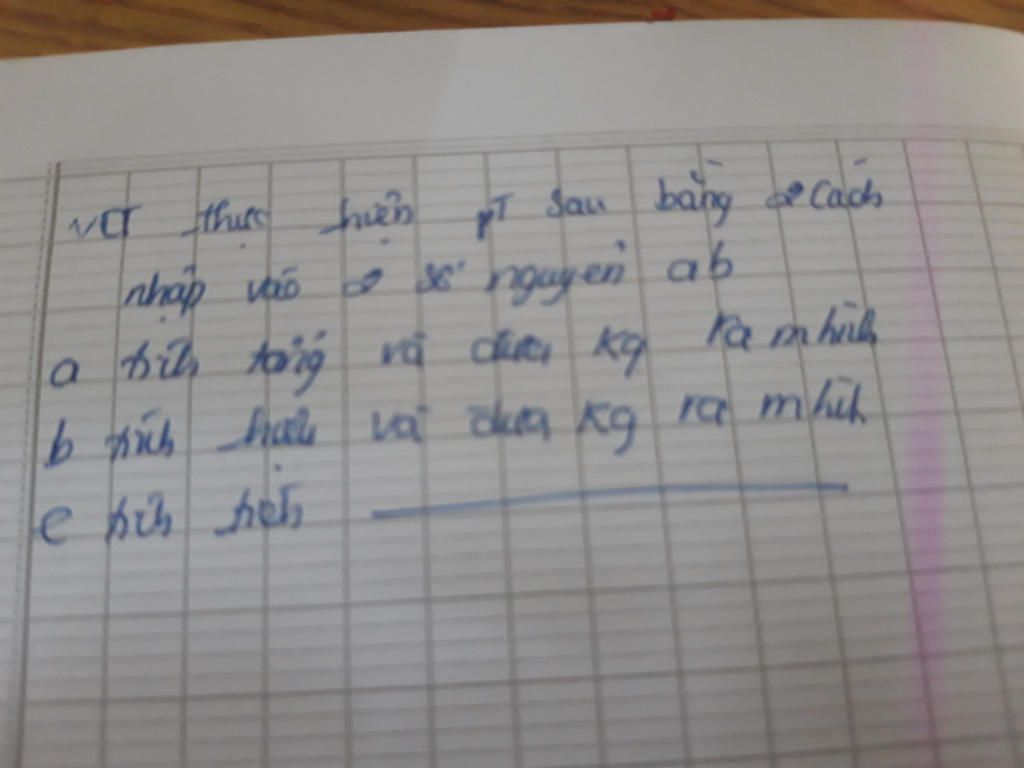 VCT thực hiện PT sau bằng 2 cách
nhập vào 2 số nguyên a b
a tính tổng và đưa kq ra m hình
b tính hiệu và đưa kq ra m hình
c tính